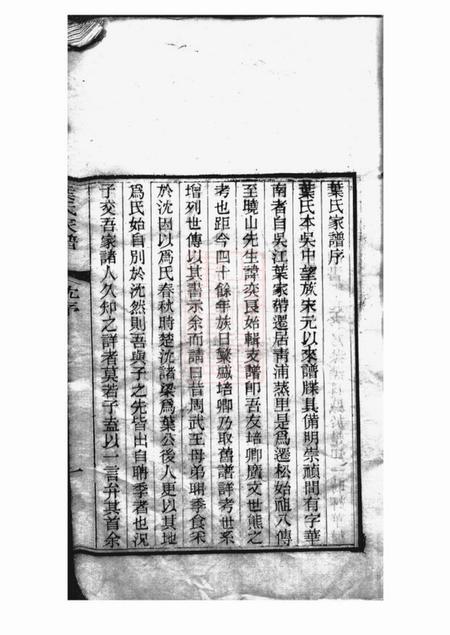 葉氏家譜序
葉氏本吳中望族宋元以來譜牒具備明崇禎間有字華
南者自吳江葉家帶遷居靑浦蒸里是爲遷松始祖八傳
至曉山先生諱奕良始輯支譜卽吾友培卿廣文世熊之
考也距今四十餘年族日繁盛培卿乃取舊譜詳考世系
增列世傳以其書示余而請曰昔周武王母弟聃季食釆
於沈因以爲氏春秋時楚沈諸梁爲葉公後人更以其地
爲氏始自別於沈然則吾與子之先皆出自聃季者也況
子交吾家諸人久知之詳者莫若子盍以一言弁其首余
葉氏家譜 序 一